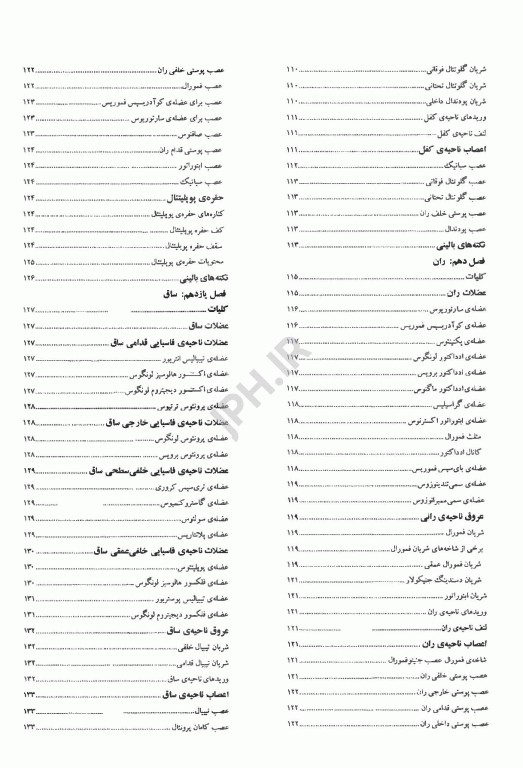 شریان گلوتئال فوقانی ۱۱۰
شریان گلوتئال تحتانی ۱۱۰
شریان پودندال داخلی ۱۱۰
وریدهای ناحیه‌ی کفل ۱۱۱
لنف ناحیه‌ی کفل ۱۱۱
اعصاب ناحیه‌ی کفل ۱۱۱
عصب سیاتیک ۱۱۲
عصب گلوتئال فوقانی ۱۱۳
عصب گلوتئال تحتانی ۱۱۳
عصب پوستی خلف ران ۱۱۳
عصب پودندال ۱۱۳
نکته‌های بالینی ۱۱۳
فصل دهم: ران
کلیات ۱۱۵
عضلات ران ۱۱۵
عضله‌ی سارتوریوس ۱۱۶
عضله‌ی کوآدریسپس فموریس ۱۱۶
عضله‌ی پکتینئوس ۱۱۷
عضله‌ی ادداکتور لونگوس ۱۱۷
عضله‌ی ادداکتور برویس ۱۱۷
عضله‌ی ادداکتور ماگنوس ۱۱۷
عضله‌ی گراسیلیس ۱۱۸
عضله‌ی ابتوراتور اکسترنوس ۱۱۸
مثلث فمورال ۱۱۸
کانال ادداکتور ۱۱۸
عضله‌ی بای‌سپس فموریس ۱۱۸
عضله‌ی سمی‌تندینوزوس ۱۱۹
عضله‌ی سمی‌ممبرانوزوس ۱۱۹
عروق ناحیه‌ی رانی ۱۱۹
شریان فمورال ۱۱۹
برخی از شاخه‌های شریان فمورال ۱۱۹
شریان فمورال عمقی ۱۱۹
شریان دسندینگ جنیکولار ۱۲۱
شریان ابتوراتور ۱۲۱
وریدهای ناحیه‌ی ران ۱۲۱
لنف ناحیه‌ی ران ۱۲۱
اعصاب ناحیه‌ی ران ۱۲۱
شاخه‌ی فمورال عصب جنیتوفمورال ۱۲۱
عصب پوستی خلفی ران ۱۲۱
عصب پوستی خارجی ران ۱۲۲
عصب پوستی قدامی ران ۱۲۲
عصب پوستی داخلی ران ۱۲۲
عصب پوستی خلفی ران ۱۲۲
عصب فمورال ۱۲۲
عصب برای عضله‌ی کوآدریسپس فموریس ۱۲۳
عصب برای عضله‌ی سارتوریوس ۱۲۳
عصب صافنوس ۱۲۳
عصب پوستی قدام ران ۱۲۴
عصب ابتوراتور ۱۲۴
عصب سیاتیک ۱۲۴
حفره‌ی پوپلیتئال ۱۲۴
کناره‌های حفره‌ی پوپلیتئال ۱۲۴
کف حفره پوپلیتئال ۱۲۴
سقف حفره پوپلیتئال ۱۲۴
محتویات حفره‌ی پوپلیتئال ۱۲۵
نکته‌های بالینی ۱۲۶
فصل یازدهم: ساق
کلیات ۱۲۷
عضلات ساق ۱۲۷
عضلات ناحیه‌ی فاسیایی قدامی ساق ۱۲۷
عضله‌ی تیبیالیس انتریور ۱۲۷
عضله‌ی اکستنسور هالوسیز لونگوس ۱۲۷
عضله‌ی اکستنسور دیجیتروم لونگوس ۱۲۷
عضله‌ی پرونئوس ترتیوس ۱۲۸
عضلات ناحیه‌ی فاسیایی خارجی ساق ۱۲۸
عضله‌ی پرونئوس لونگوس ۱۲۸
عضله‌ی پرونئوس برویس ۱۲۸
عضلات ناحیه‌ی فاسیایی خلفی‌سطحی ساق ۱۲۹
عضله‌ی تری‌سپس کروری ۱۲۹
عضله‌ی گاستروکنمیوس ۱۲۹
عضله‌ی سولئوس ۱۲۹
عضله‌ی پلانتاریس ۱۲۹
عضلات ناحیه‌ی فاسیایی خلفی‌عمقی ساق ۱۳۰
عضله‌ی پوپلیتئوس ۱۳۰
عضله‌ی فلکسور هالوسیز لونگوس ۱۳۰
عضله‌ی تیبیالیس پوستریور ۱۳۱
عضله‌ی فلکسور دیجیتروم لونگوس ۱۳۱
عروق ناحیه‌ی ساق ۱۳۲
شریان تیبیال خلفی ۱۳۲
شریان تیبیال قدامی ۱۳۲
وریدهای ناحیه‌ی ساق ۱۳۲
اعصاب ناحیه‌ی ساق ۱۳۳
عصب تیبیال ۱۳۳
عصب کامان پرونئال ۱۳۳
JPH.IR